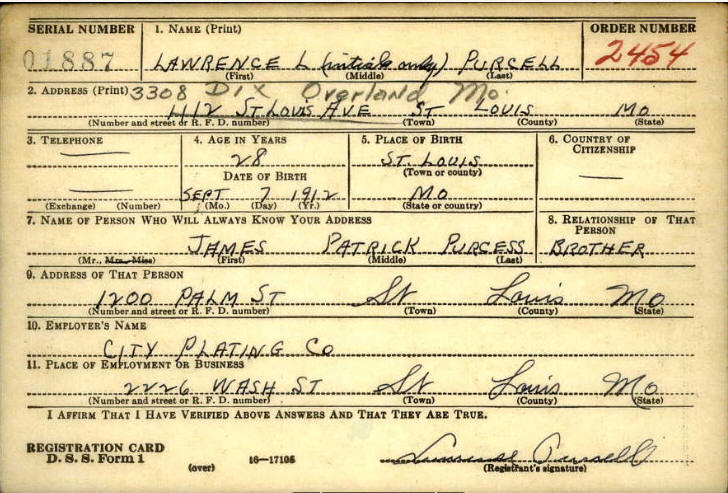 SERIAL NUMBER 1. NAME (Print) ORDER NUMBER
01887 LAWRENCE L (initials only) PURCELL 2454
(First) (Middle) (Last)
2. ADDRESS (Print) 3308 Dix Overland Mo.
1112 ST LOUIS AVE ST LOUIS MO
(Number and street or R. F. D. number) (Town) (County) (State)
3. TELEPHONE 4. AGE IN YEARS 5. PLACE OF BIRTH 6. COUNTRY OF CITIZENSHIP
28 ST. LOUIS
DATE OF BIRTH (Town or county)
SEPT 7 1912 MO
(Exchange) (Number) (Mo.) (Day) (Yr.) (State or country)
7. NAME OF PERSON WHO WILL ALWAYS KNOW YOUR ADDRESS 8. RELATIONSHIP OF THAT PERSON
JAMES PATRICK PURCESS BROTHER
(Mr., Mrs. Miss) (First) (Middle) (Last)
9. ADDRESS OF THAT PERSON
1200 PALM ST St Louis Mo
(Number and street or R. F. D. number) (Town) (County) (State)
10. EMPLOYER'S NAME
CITY PLATING CO
11. PLACE OF EMPLOYMENT OR BUSINESS
2226 WASH ST St Louis Mo
(Number and street or R. F. D. number) (Town) (County) (State)
I AFFIRM THAT I HAVE VERIFIED ABOVE ANSWERS AND THAT THEY ARE TRUE.
REGISTRATION CARD
D. S. S. Form 1 (over) 16-17105 Lawrence Purcell
(Registrant's signature)